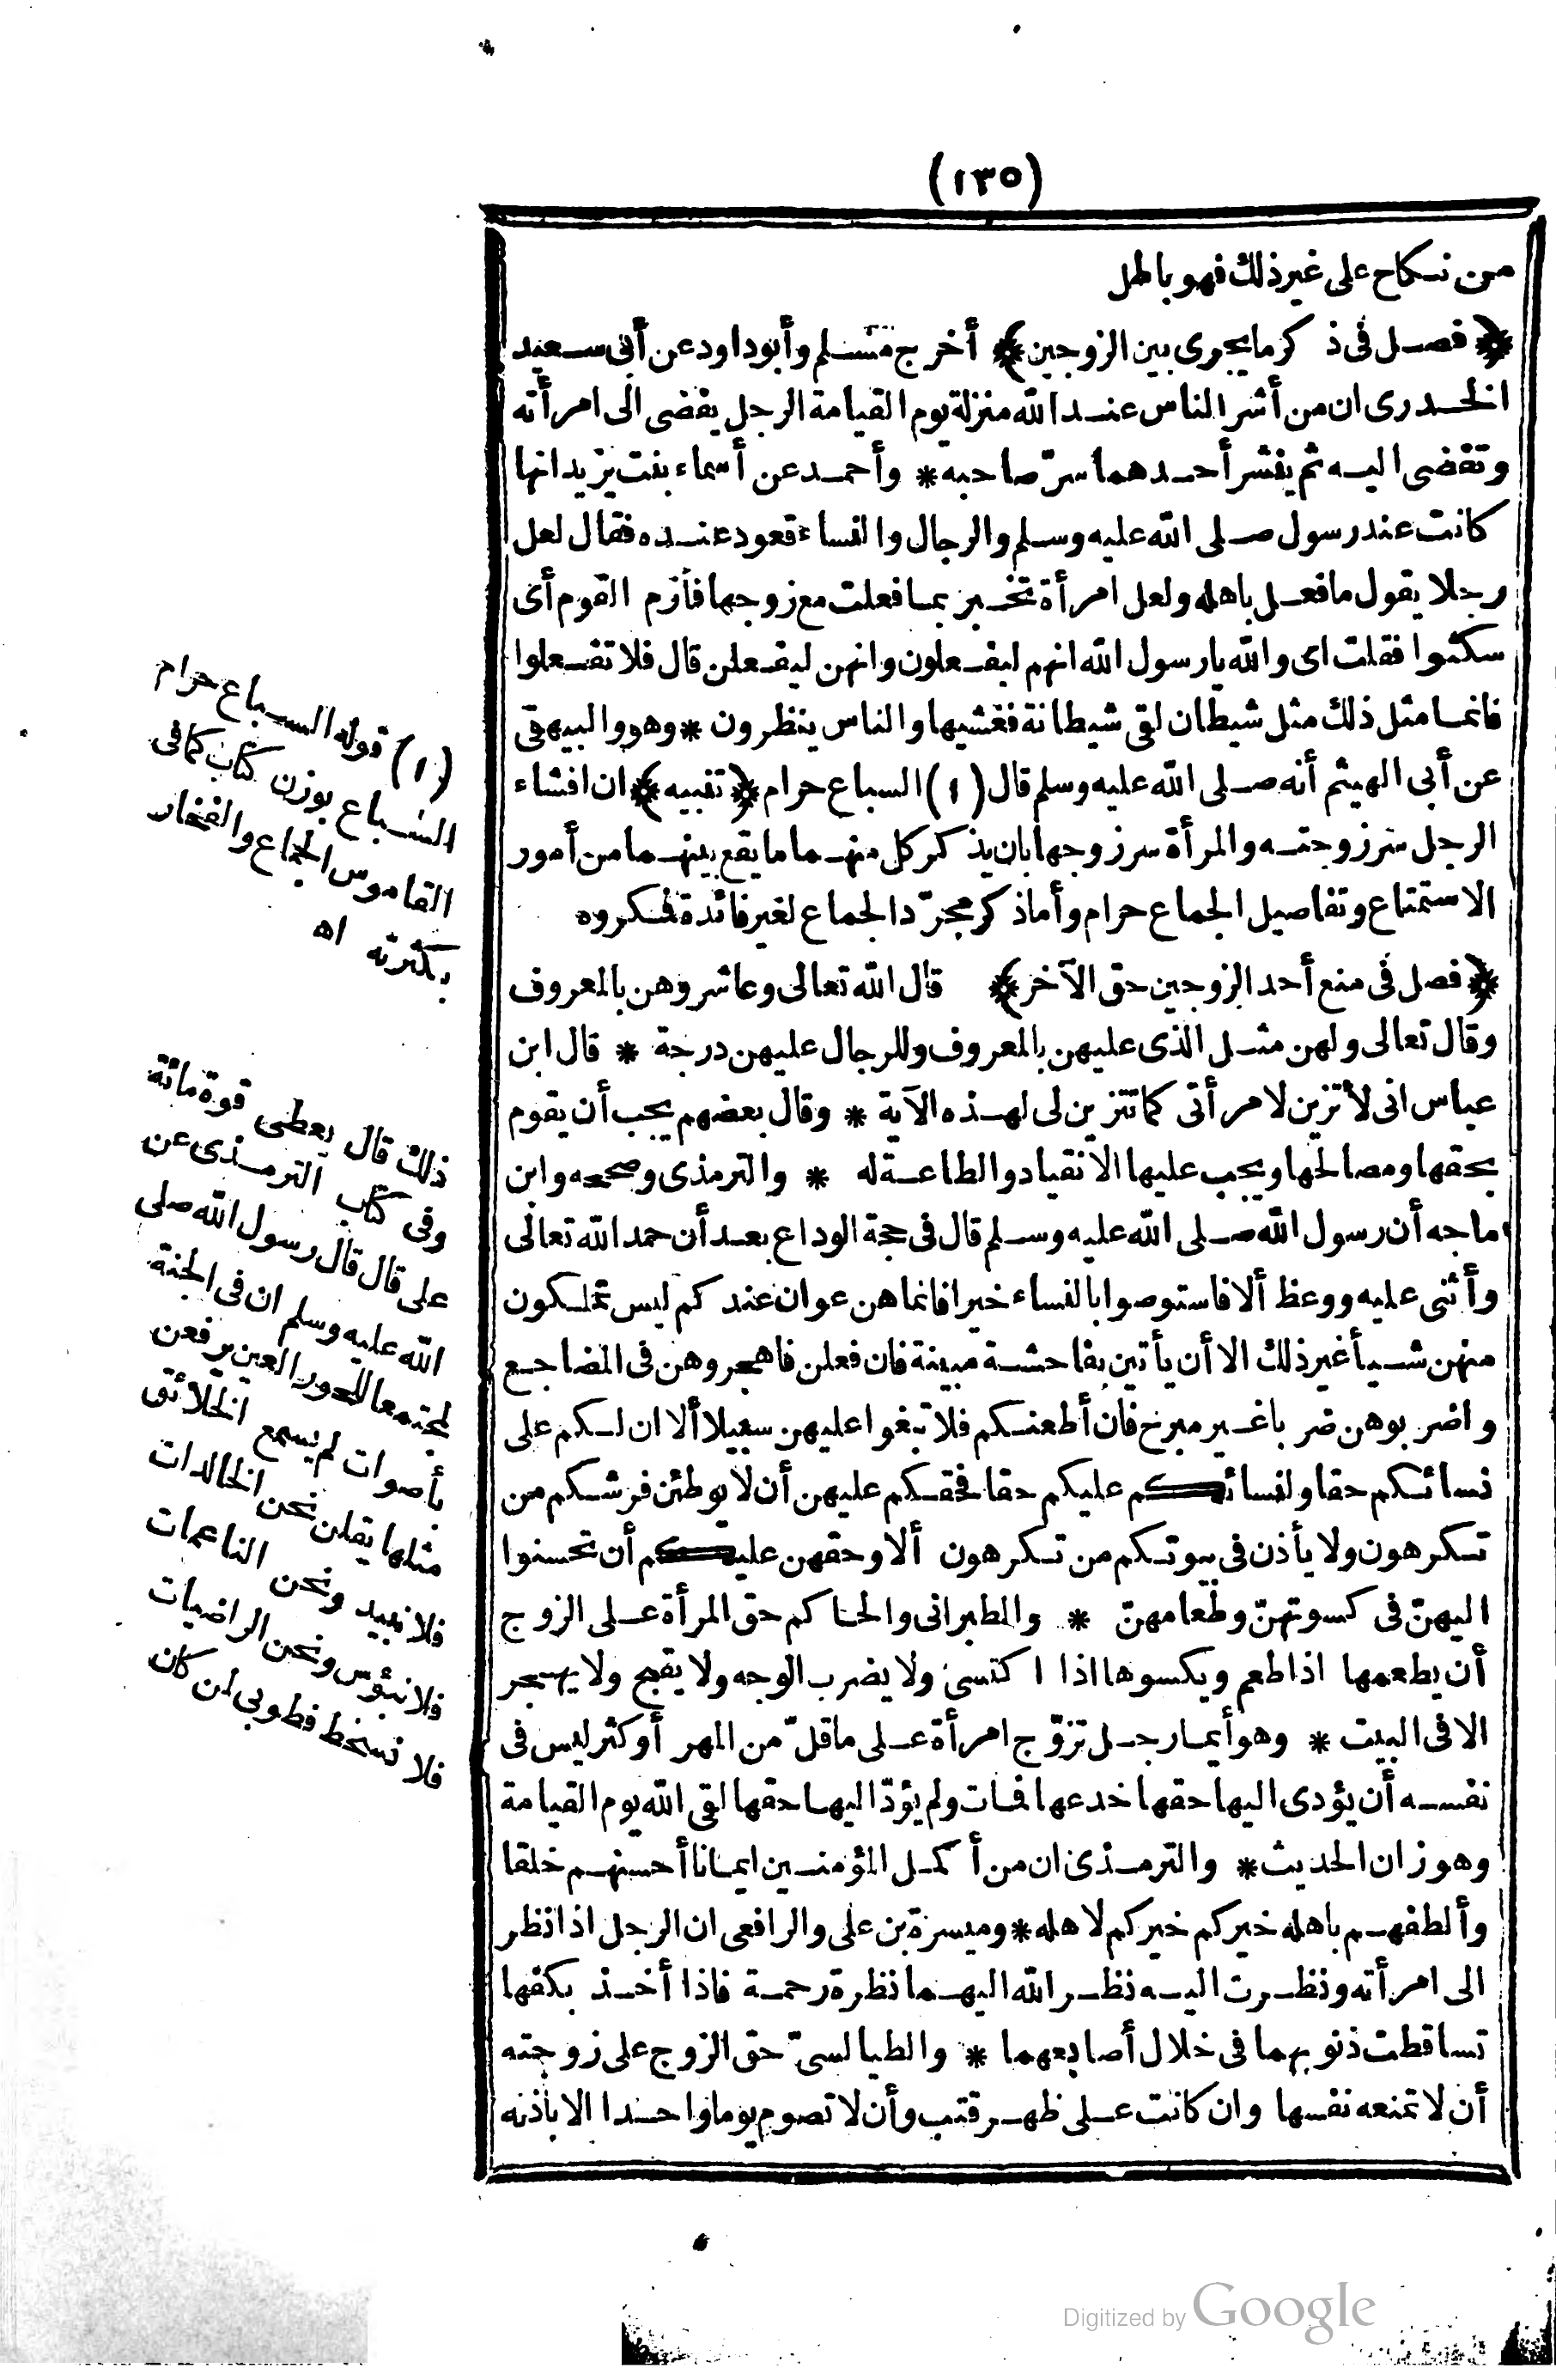 (١٣٥)
من نكاح على غير ذلك فهو باطل
﴿ فصل فى ذكر ما يجرى بين الزوجين ﴾ أخرج مسلم وأبو داود عن أبى سعيد
الخدرى ان من أشر الناس عند الله منزلة يوم القيامة الرجل يفضى الى امرأته
وتفضى اليه ثم ينشر أحدهما سرّ صاحبه * وأحمد عن أسماء بنت يزيد انها
كانت عند رسول صلى الله عليه وسلم والرجال والنساء قعود عنده فقال لعل
رجلا يقول ما فعل باهله ولعل امرأة تخبر بما فعلت مع زوجها فأزم القوم أى
سكتوا فقلت اى والله يا رسول الله انهم ليفعلون وانهن ليفعلن قال فلا تفعلوا
فانما مثل ذلك مثل شيطان لقى شيطانة فغشيها والناس ينظرون * وهو والبيهقى
عن أبى الهيثم أنه صلى الله عليه وسلم قال (١) السباع حرام ﴿ تنبيه ﴾ ان افشاء
الرجل سر زوجته والمرأة سر زوجها بان يذكر كل منهما ما يقع بينهما من أمور
الاستمتاع وتفاصيل الجماع حرام وأما ذكر مجرّد الجماع لغير فائدة فمكروه
﴿ فصل فى منع أحد الزوجين حق الآخر ﴾ قال الله تعالى وعاشروهن بالمعروف
وقال تعالى ولهن مثل الذى عليهن بالمعروف وللرجال عليهن درجة * قال ابن
عباس انى لأتزين لامرأتى كما تتزين لى لهذه الآية * وقال بعضهم يجب أن يقوم
بحقها ومصالحها ويجب عليها الانقياد والطاعة له * والترمذى وصححه وابن
ماجه أن رسول الله صلى الله عليه وسلم قال فى حجة الوداع بعد أن حمد الله تعالى
وأثنى عليه ووعظ ألا فاستوصوا بالنساء خيرا فانما هن عوان عندكم ليس تملكون
منهن شيأ غير ذلك الا أن يأتين بفاحشة مبينة فان فعلن فاهجروهن فى المضاجع
واضربوهن ضربا غير مبرح فان أطعنكم فلا تبغوا عليهن سبيلا ألا ان لكم على
نسائكم حقا ولنسائكم عليكم حقا فحقكم عليهن أن لا يوطئن فرشكم من
تكرهون ولا يأذن فى بيوتكم من تكرهون ألا وحقهن عليكم أن تحسنوا
اليهنّ فى كسوتهنّ وطعامهنّ * والطبرانى والحاكم حق المرأة على الزوج
أن يطعمها اذا طعم ويكسوها اذا اكتسى ولا يضرب الوجه ولا يقبح ولا يهجر
الا فى البيت * وهو أيما رجل تزوّج امرأة على ما قلّ من المهر أو كثر ليس فى
نفسه أن يؤدى اليها حقها خدعها فمات ولم يؤدّ اليها حقها لقى الله يوم القيامة
وهو زان الحديث * والترمذى ان من أكمل المؤمنين ايمانا أحسنهم خلقا
وألطفهم باهله خيركم خيركم لاهله * وميسرة بن على والرافعى ان الرجل اذا نظر
الى امرأته ونظرت اليه نظر الله اليهما نظرة رحمة فاذا أخذ بكفها
تساقطت ذنوبهما فى خلال أصابعهما * والطيالسىّ حق الزوج على زوجته
أن لا تمنعه نفسها وان كانت على ظهر قتب وأن لا تصوم يوما واحدا الا باذنه
(١) قوله السباع حرام
السباع بوزن كتاب كما فى
القاموس الجماع والفخار
بكثرته اه
ذلك قال يعطى قوة مائة
وفى كتاب الترمذى عن
على قال قال رسول الله صلى
الله عليه وسلم ان فى الجنة
لمجتمعا للحور العين يرفعن
بأصوات لم يسمع الخلائق
مثلها يقلن نحن الخالدات
فلا نبيد ونحن الناعمات
فلا نبؤس ونحن الراضيات
فلا نسخط فطوبى لمن كان
Digitized by Google